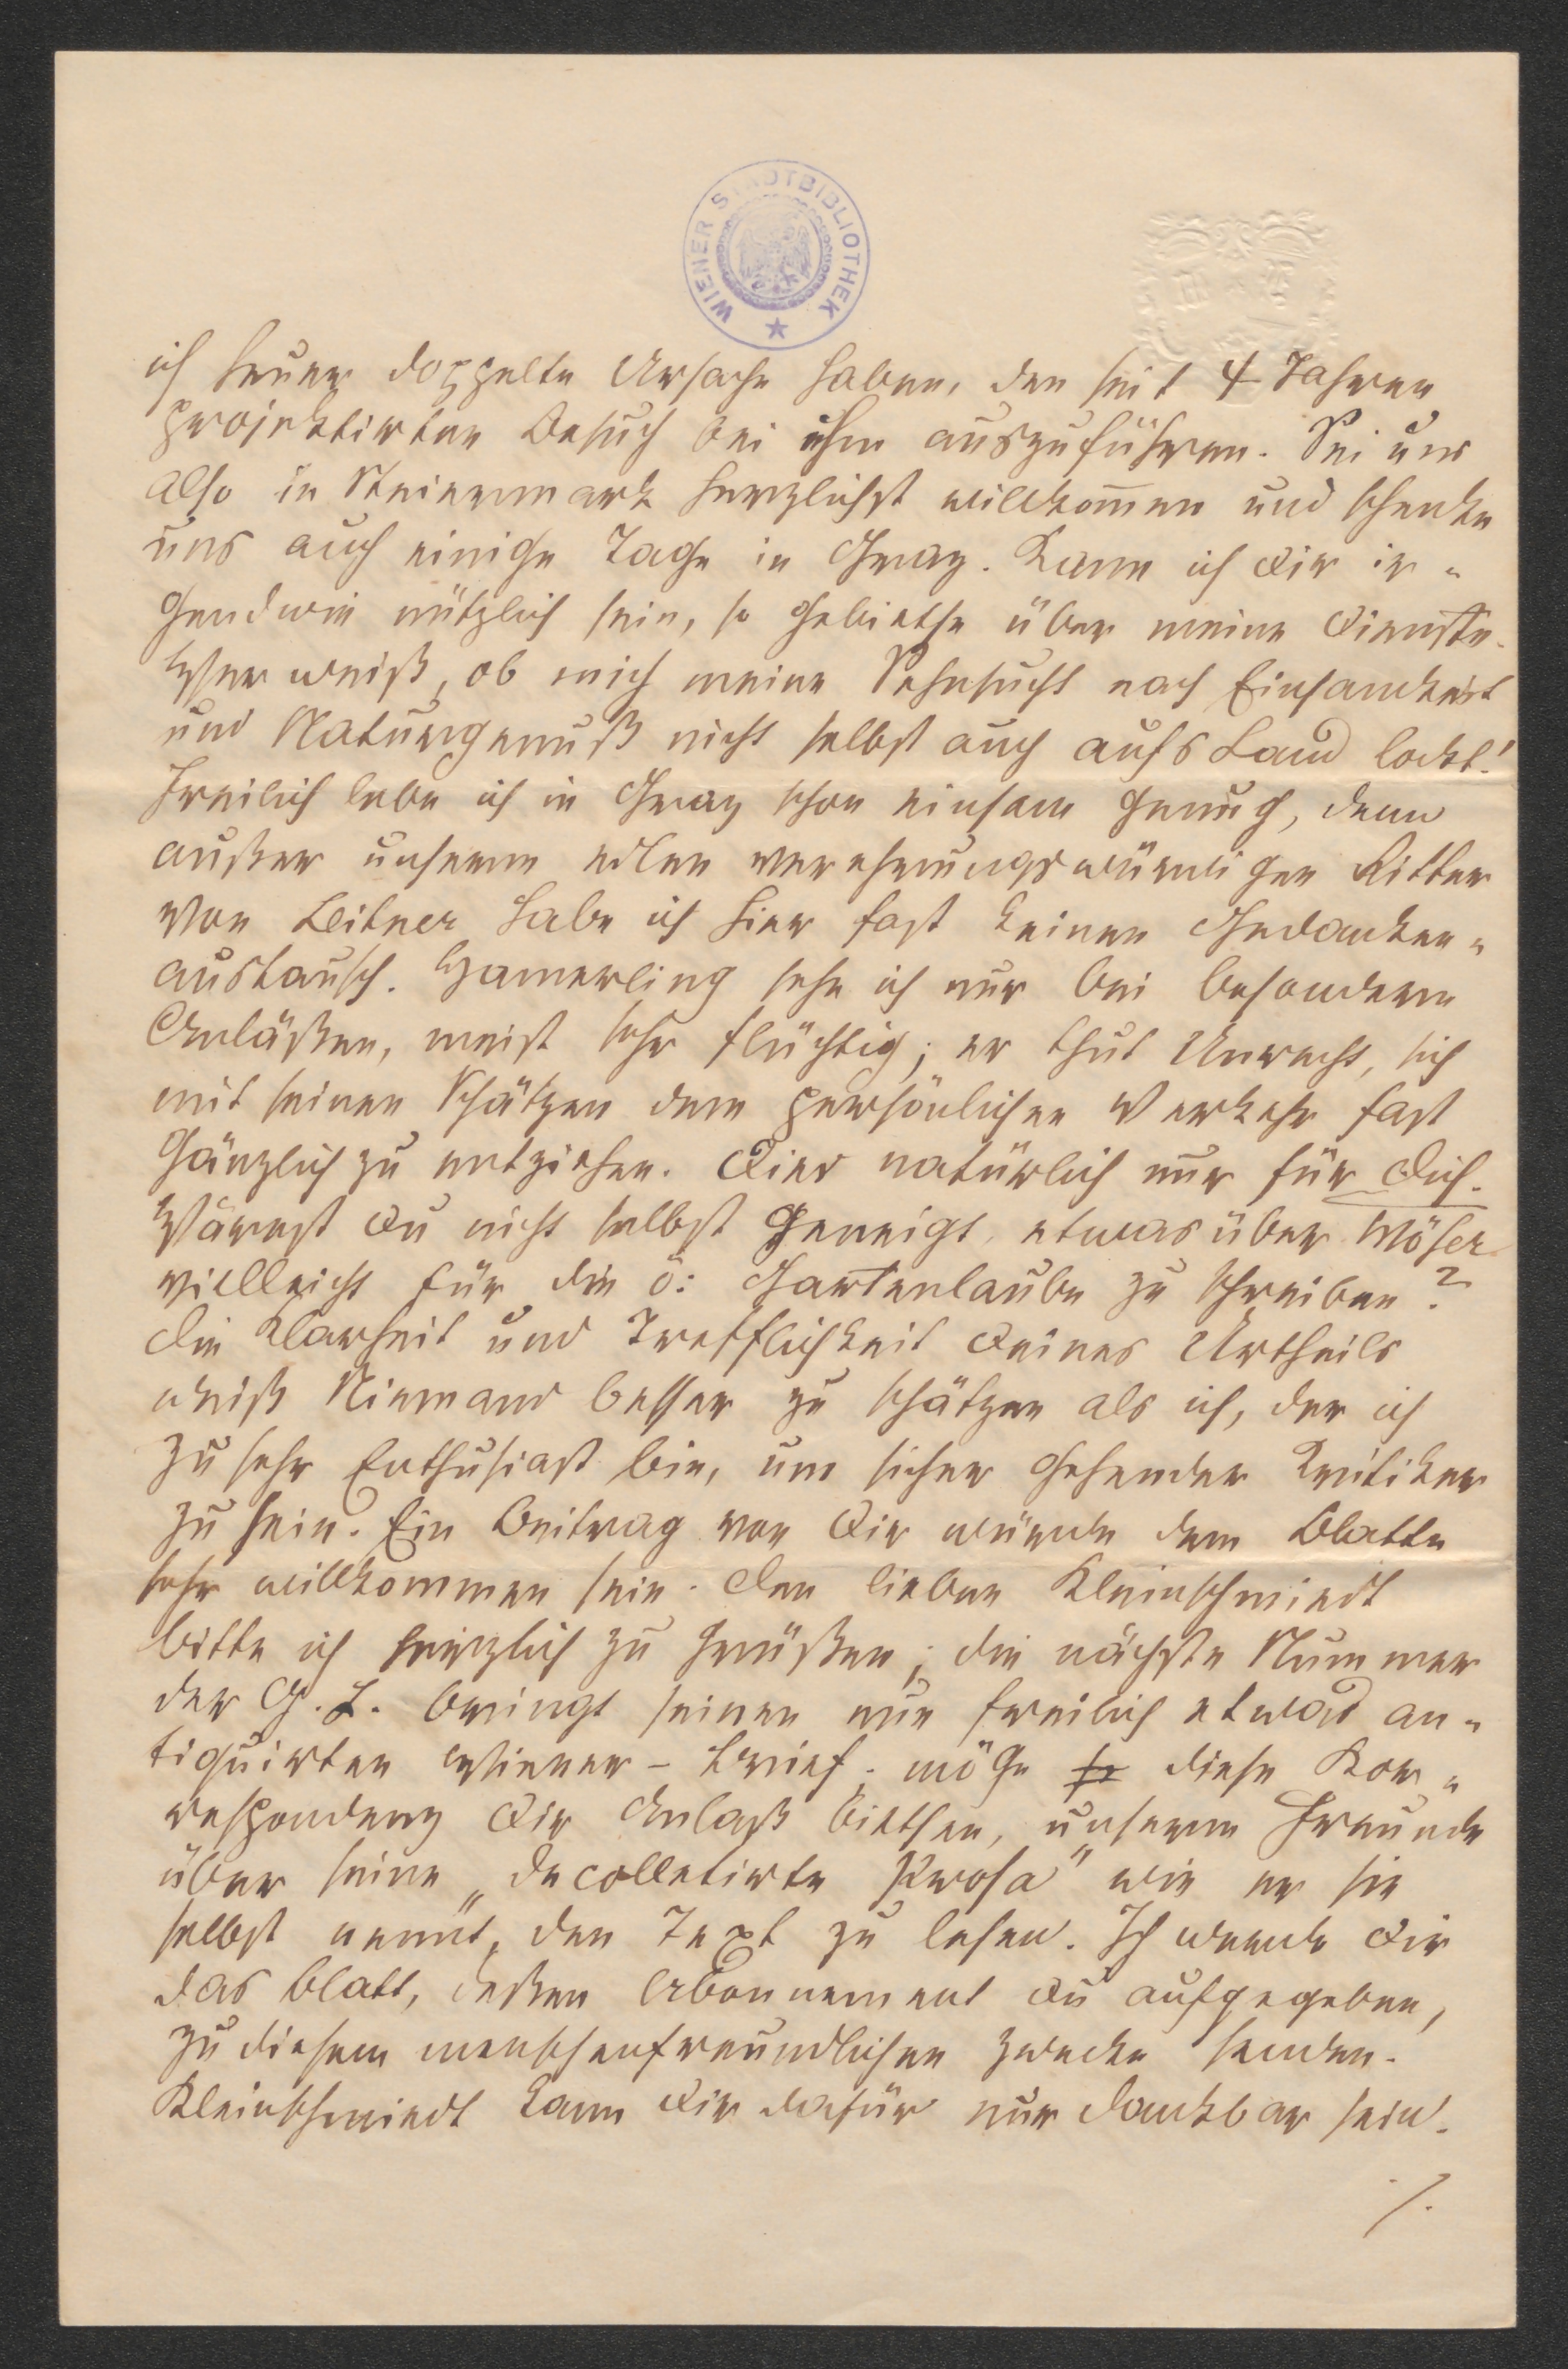 WIENER STADTBIBLIOTHEK
ich heuer doppelte Ursache haben, den seit 4 Jahren
projektirten Besuch bei ihm auszuführen. Sei uns
also in Steiermark herzlichst willkom̄en und schenke
uns auch einige Tage in Graz. Kann ich Dir ir„
gendwie nützlich sein, so gebiethe über meine Dienste.
Wer weiß, ob mich meine Sehnsucht nach Einsamkeit
und Naturgenuß nicht selbst auch aufs Land lockt!
Freilich lebe ich in Graz schon einsam genug, denn
außer unserem edlen verehrungswürdigen Ritter
von Leitner habe ich hier fast keinen Gedanken„
austausch. Hamerling sehe ich nur bei besondern
Anläßen, meist sehr flüchtig; er thut Unrecht, sich
mit seinen Schätzen dem persönlichen Verkehr fast
gänzlich zu entziehen. Dies natürlich nur für Dich.
Wärest Du nicht selbst geneigt, etwas über Möser
vielleicht für die ö: Gartenlaube zu schreiben?
Die Klarheit und Trefflichkeit Deines Urtheils
weiß Niemand besser zu schätzen als ich, der ich
zu sehr Enthusiast bin, um sicher gehender Kritiker
zu sein. Ein Beitrag von Dir würde dem Blatte
sehr willkommen sein. Den lieben Kleinschmiedt
bitte ich herzlich zu grüßen; die nächste Nummer
der G. L. bringt seinen nun freilich etwas an„
tiquirten Wiener-Brief; möge diese Kor„
respondenz Dir Anlaß biethen, unserem Freunde
über seine „decolletirte Prosa" wie er sie
selbst nennt, den Text zu lesen. Ich werde Dir
das Blatt, deßen Abonnement Du aufgegeben,
zu diesem menschenfreundlichen Zwecke senden.
Kleinschmiedt kann Dir dafür nur dankbar sein.
./.